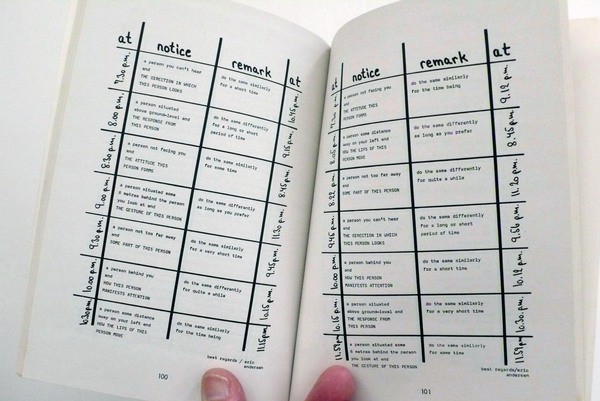 at notice remark at
7.30 p.m.
a person you can't hear
and
THE DIRECTION IN WHICH
THIS PERSON LOOKS
do the same similarly
for a short time
10.45 p.m.
8.00 p.m.
a person situated
above ground-level and
THE RESPONSE FROM
THIS PERSON
do the same differently
for a long or short
period of time
9.15 p.m.
8.30 p.m.
a person not facing you
and
THE ATTITUDE THIS
PERSON FORMS
do the same similarly
for some time
8.45 p.m.
9.00 p.m.
a person situated some
6 metres behind the person
you look at and
THE GESTURE OF THIS PERSON
do the same differently
as long as you prefer
11.30 p.m.
9.30 p.m.
a person not too far away
and
SOME PART OF THIS PERSON
do the same similarly
for a very short time
9.45 p.m.
10.00 p.m.
a person behind you
and
HOW THIS PERSON
MANIFESTS ATTENTION
do the same differently
for quite a while
10.15 p.m.
10.30 p.m.
a person some distance
away on your left and
HOW THE LIPS OF THIS
PERSON MOVE
do the same similarly
for the time being
11.15 p.m.
best regards / eric
andersen
100
notice remark at
a person not facing you
and
THE ATTITUDE THIS
PERSON FORMS
do the same similarly
for the time being
9.12 p.m.
8.05 p.m.
a person some distance
away on your left and
HOW THE LIPS OF THIS
PERSON MOVE
do the same differently
as long as you prefer
8.45 p.m.
8.22 p.m.
a person not too far away
and
SOME PART OF THIS PERSON
do the same differently
for quite a while
11.20 p.m.
9.45 p.m.
a person you can't hear
and
THE DIRECTION IN WHICH
THIS PERSON LOOKS
do the same differently
for a long or short
period of time
9.56 p.m.
10.00 p.m.
a person behind you
and
HOW THIS PERSON
MANIFESTS ATTENTION
do the same similarly
for a short time
10.12 p.m.
10.15 p.m.
a person situated
above ground-level and
THE RESPONSE FROM
THIS PERSON
do the same similarly
for a very short time
10.30 p.m.
11.57 p.m.
a person situated some
6 metres behind the person
you look at and
THE GESTURE OF THIS PERSON
do the same similarly
for some time
11.59 p.m.
best regards/eric
andersen
101